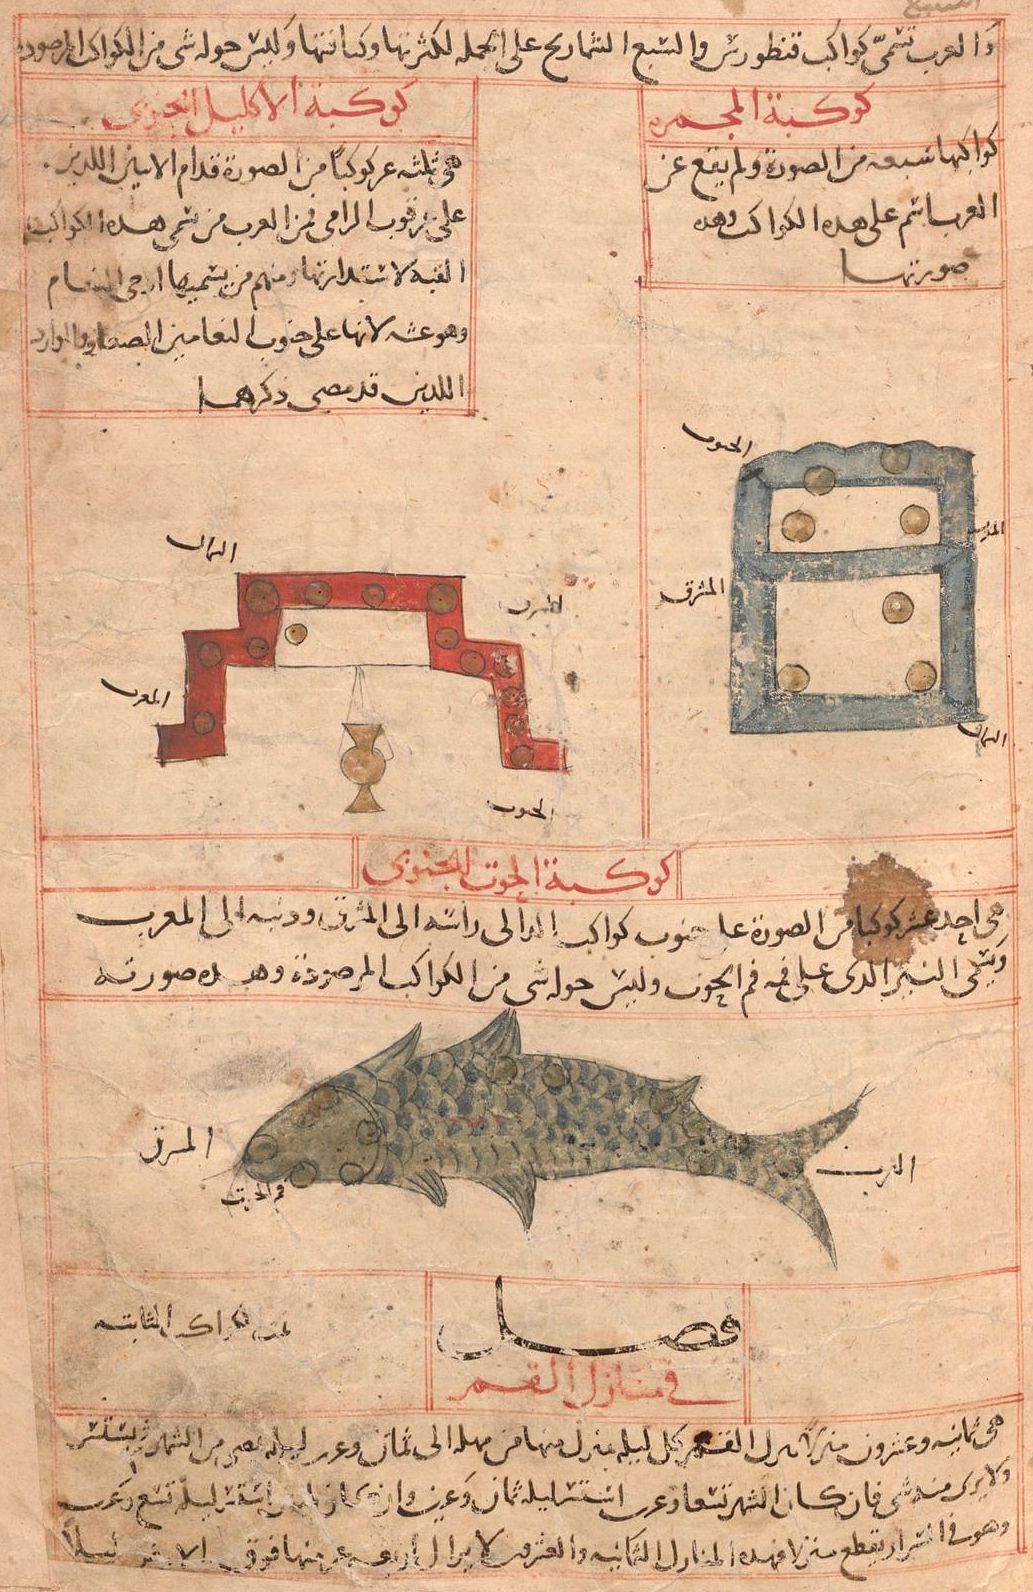 والعرب تسمى كواكب قنطورس والسبع الشماريخ على الجمله لكثرتها وكثافتها وليس حوله شى من الكواكب المرصوده
كوكبة المجمره
كواكبها سبعه من الصورة ولم يقع عن
العرب اسم على هذه الكواكب وهذه
صورتها
كوكبة الاكليل الجنوبى
هى ثلثه عشر كوكبا من الصورة قدام الاثنين اللذين
على عرقوب الرامى فمن العرب من يسمى هذه الكواكب
القبه لاستدارتها ومنهم من يسميها ادحى النعام
وهو عشه لانها على جنوب النعامين الصادر والوارد
اللذين قد مضى ذكرهما
الجنوب
المغرب
المشرق
الشمال
الشمال
المشرق
المغرب
الجنوب
كوكبة الحوت الجنوبى
هى احد عشر كوكبا من الصورة على جنوب كواكب الدالى راسه الى المشرق وذنبه الى المغرب
ويسمى النير الذى على فمه فم الحوت وليس حوله شى من الكواكب المرصودة وهذه صورته
المشرق
فم الحوت
المغرب
فصل
الكواكب الثابته
فى منازل القمر
هى ثمانيه وعشرون منزلا ينزل القمر كل ليله بمنزل منها من مهله الى ثمان وعشرين ليله تمضى من الشهر ثم يستتر
ولا يرى منه شى فان كان الشهر تسعا وعشرين استتر ليله ثمان وعشرين وان كان ثلثين استتر ليله تسع وعشرين
وهو فى السرار يقطع منزلا فهذه المنازل الثمانيه والعشرون لا يزال اربعه عشر منها فوق الارض ليلا